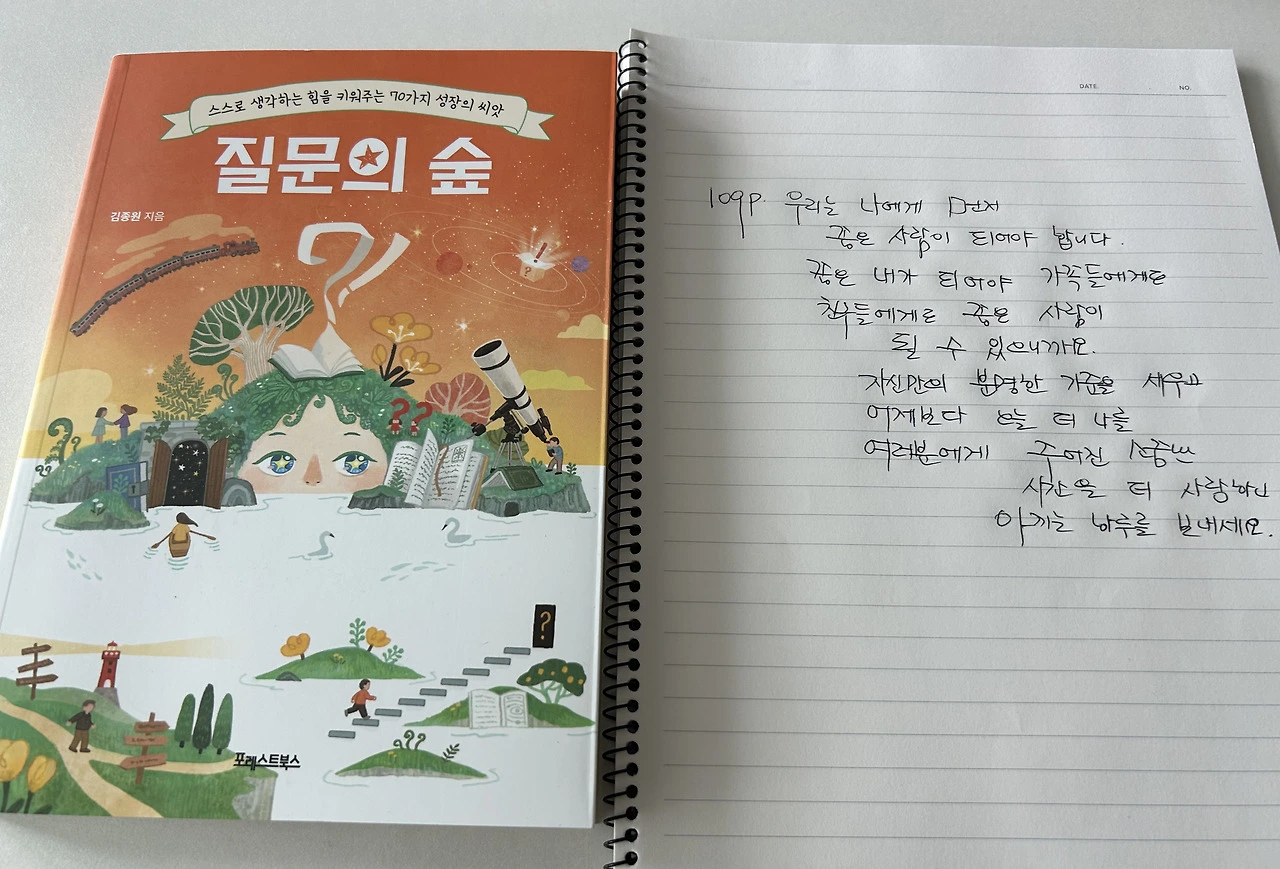 스스로 생각하는 힘을 키워주는 70가지 성장의 씨앗
질문의 숲
김종원 지음
?!
포레스트북스
DATE. NO.
109p. 우리는 나에게 먼저
좋은 사람이 되어야 합니다.
좋은 내가 되어야 가족들에게도
친구들에게도 좋은 사람이
될 수 있으니까요.
자신만의 분명한 기준을 세우고
어제보다 오늘 더 나를
여러분에게 주어진 소중한
시간을 더 사랑하고
아끼는 하루를 보내세요.